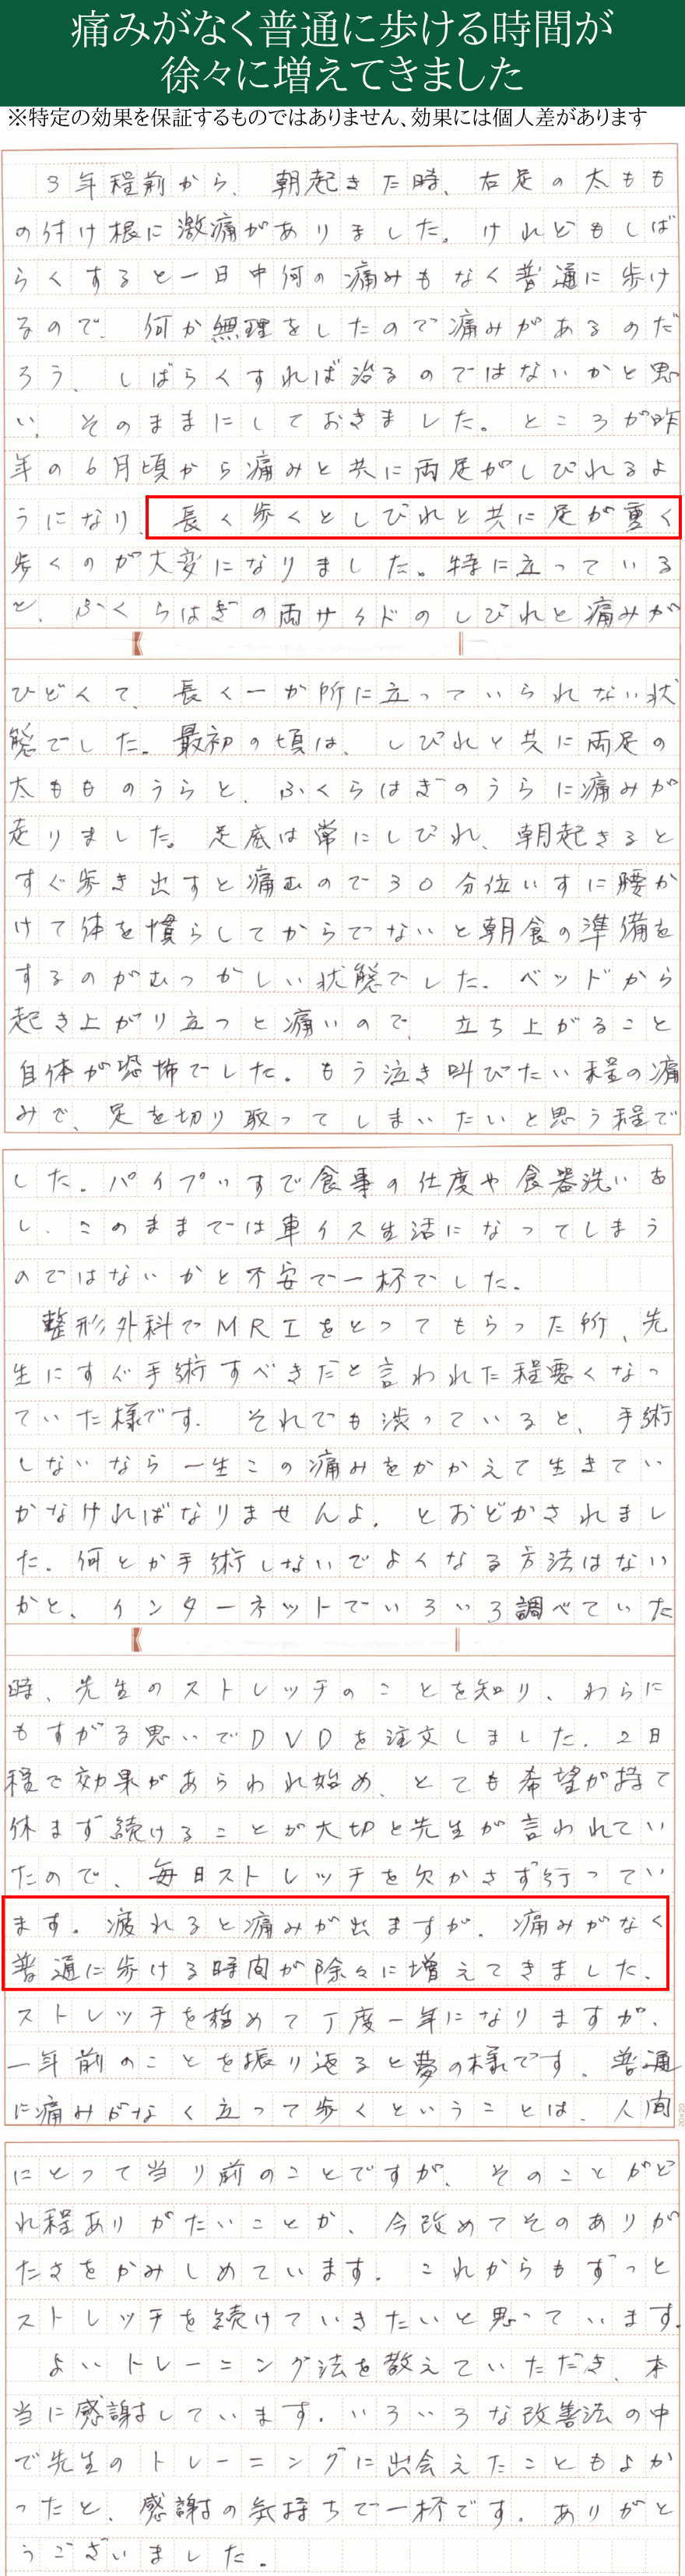 痛みがなく普通に歩ける時間が
徐々に増えてきました
※特定の効果を保証するものではありません、効果には個人差があります
3年程前から、朝起きた時、右足の太もも
の付け根に激痛がありました。けれどもしば
らくすると一日中何の痛みもなく普通に歩け
るので、何か無理をしたので痛みがあるのだ
ろう、しばらくすれば治るのではないかと思
い、そのままにしておきました。ところが昨
年の6月頃から痛みと共に両足がしびれるよ
うになり、長く歩くとしびれと共に足が重く
歩くのが大変になりました。特に立っている
と、ふくらはぎの両サイドのしびれと痛みが
ひどくて、長く一か所に立っていられない状
態でした。最初の頃は、しびれと共に両足の
太もものうらと、ふくらはぎのうらに痛みが
走りました。足底は常にしびれ、朝起きると
すぐ歩き出すと痛むので30分位いすに腰か
けて体を慣らしてからでないと朝食の準備を
するのがむつかしい状態でした。ベッドから
起き上がり立つと痛いので、立ち上がること
自体が恐怖でした。もう泣き叫びたい程の痛
みで、足を切り取ってしまいたいと思う程で
した。パイプいすで食事の仕度や食器洗いを
し、このままでは車イス生活になってしまう
のではないかと不安で一杯でした。
整形外科でMRIをとってもらった所、先
生にすぐ手術すべきだと言われた程悪くなっ
ていた様です。それでも渋っていると、手術
しないなら一生この痛みをかかえて生きてい
かなければなりませんよ、とおどかされまし
た。何とか手術しないでよくなる方法はない
かと、インターネットでいろいろ調べていた
時、先生のストレッチのことを知り、わらに
もすがる思いでDVDを注文しました。2日
程で効果があらわれ始め、とても希望が持て
休まず続けることが大切と先生が言われてい
たので、毎日ストレッチを欠かさず行ってい
ます。疲れると痛みが出ますが、痛みがなく
普通に歩ける時間が除々に増えてきました。
ストレッチを始めて丁度一年になりますが、
一年前のことを振り返ると夢の様です。普通
に痛みがなく立って歩くということは、人間
にとって当り前のことですが、そのことがど
れ程ありがたいことか、今改めてそのありが
たさをかみしめています。これからもずっと
ストレッチを続けていきたいと思っています。
よいトレーニング法を教えていただき、本
当に感謝しています。いろいろな改善法の中
で先生のトレーニングに出会えたこともよか
ったと、感謝の気持ちで一杯です。ありがと
うございました。